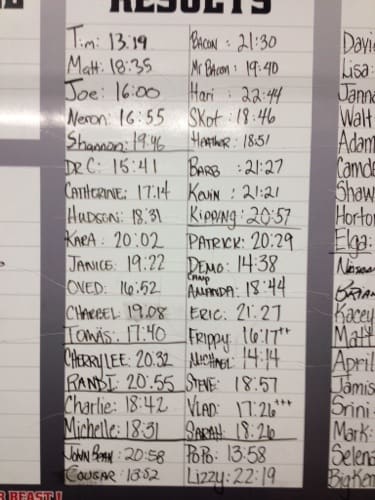 RESULTS
Tim: 13:19
Matt: 18:35
Joe: 16:00
Neron: 16:55
Shannon: 19:46
DR C: 15:41
CATHERINE: 17:14
HUDSON: 18:31
KARA: 20:02
JANICE: 19:22
OVED: 16:52
CHARBEL: 19:08
TOMÁS: 17:40
CHERRYLEE: 20:32
RANDI: 20:55
Charlie: 18:42
Michelle: 18:31
JOHN BEAN: 20:58
COUGAR: 13:52
BACON: 21:30
MR BACON: 19:40
Hari: 22:44
SKot: 18:46
HEATHER: 18:51
BARB: 21:27
KEVIN: 21:21
KIPPING: 20:57
PATRICK: 20:29
DEMO: 14:38
CAMP
AMANDA: 18:44
ERIC: 21:27
FRIPPY: 16:17++
MICHAEL: 14:14
STEVE: 18:57
VLAD: 17:26+++
SARAH: 18:26
POPS: 13:58
Lizzy: 22:19
David
Lisa:
Walt
Adam
Shaw
Horton
Elga:
Kacey
Matt
April
Srini
Mark:
BEAST!